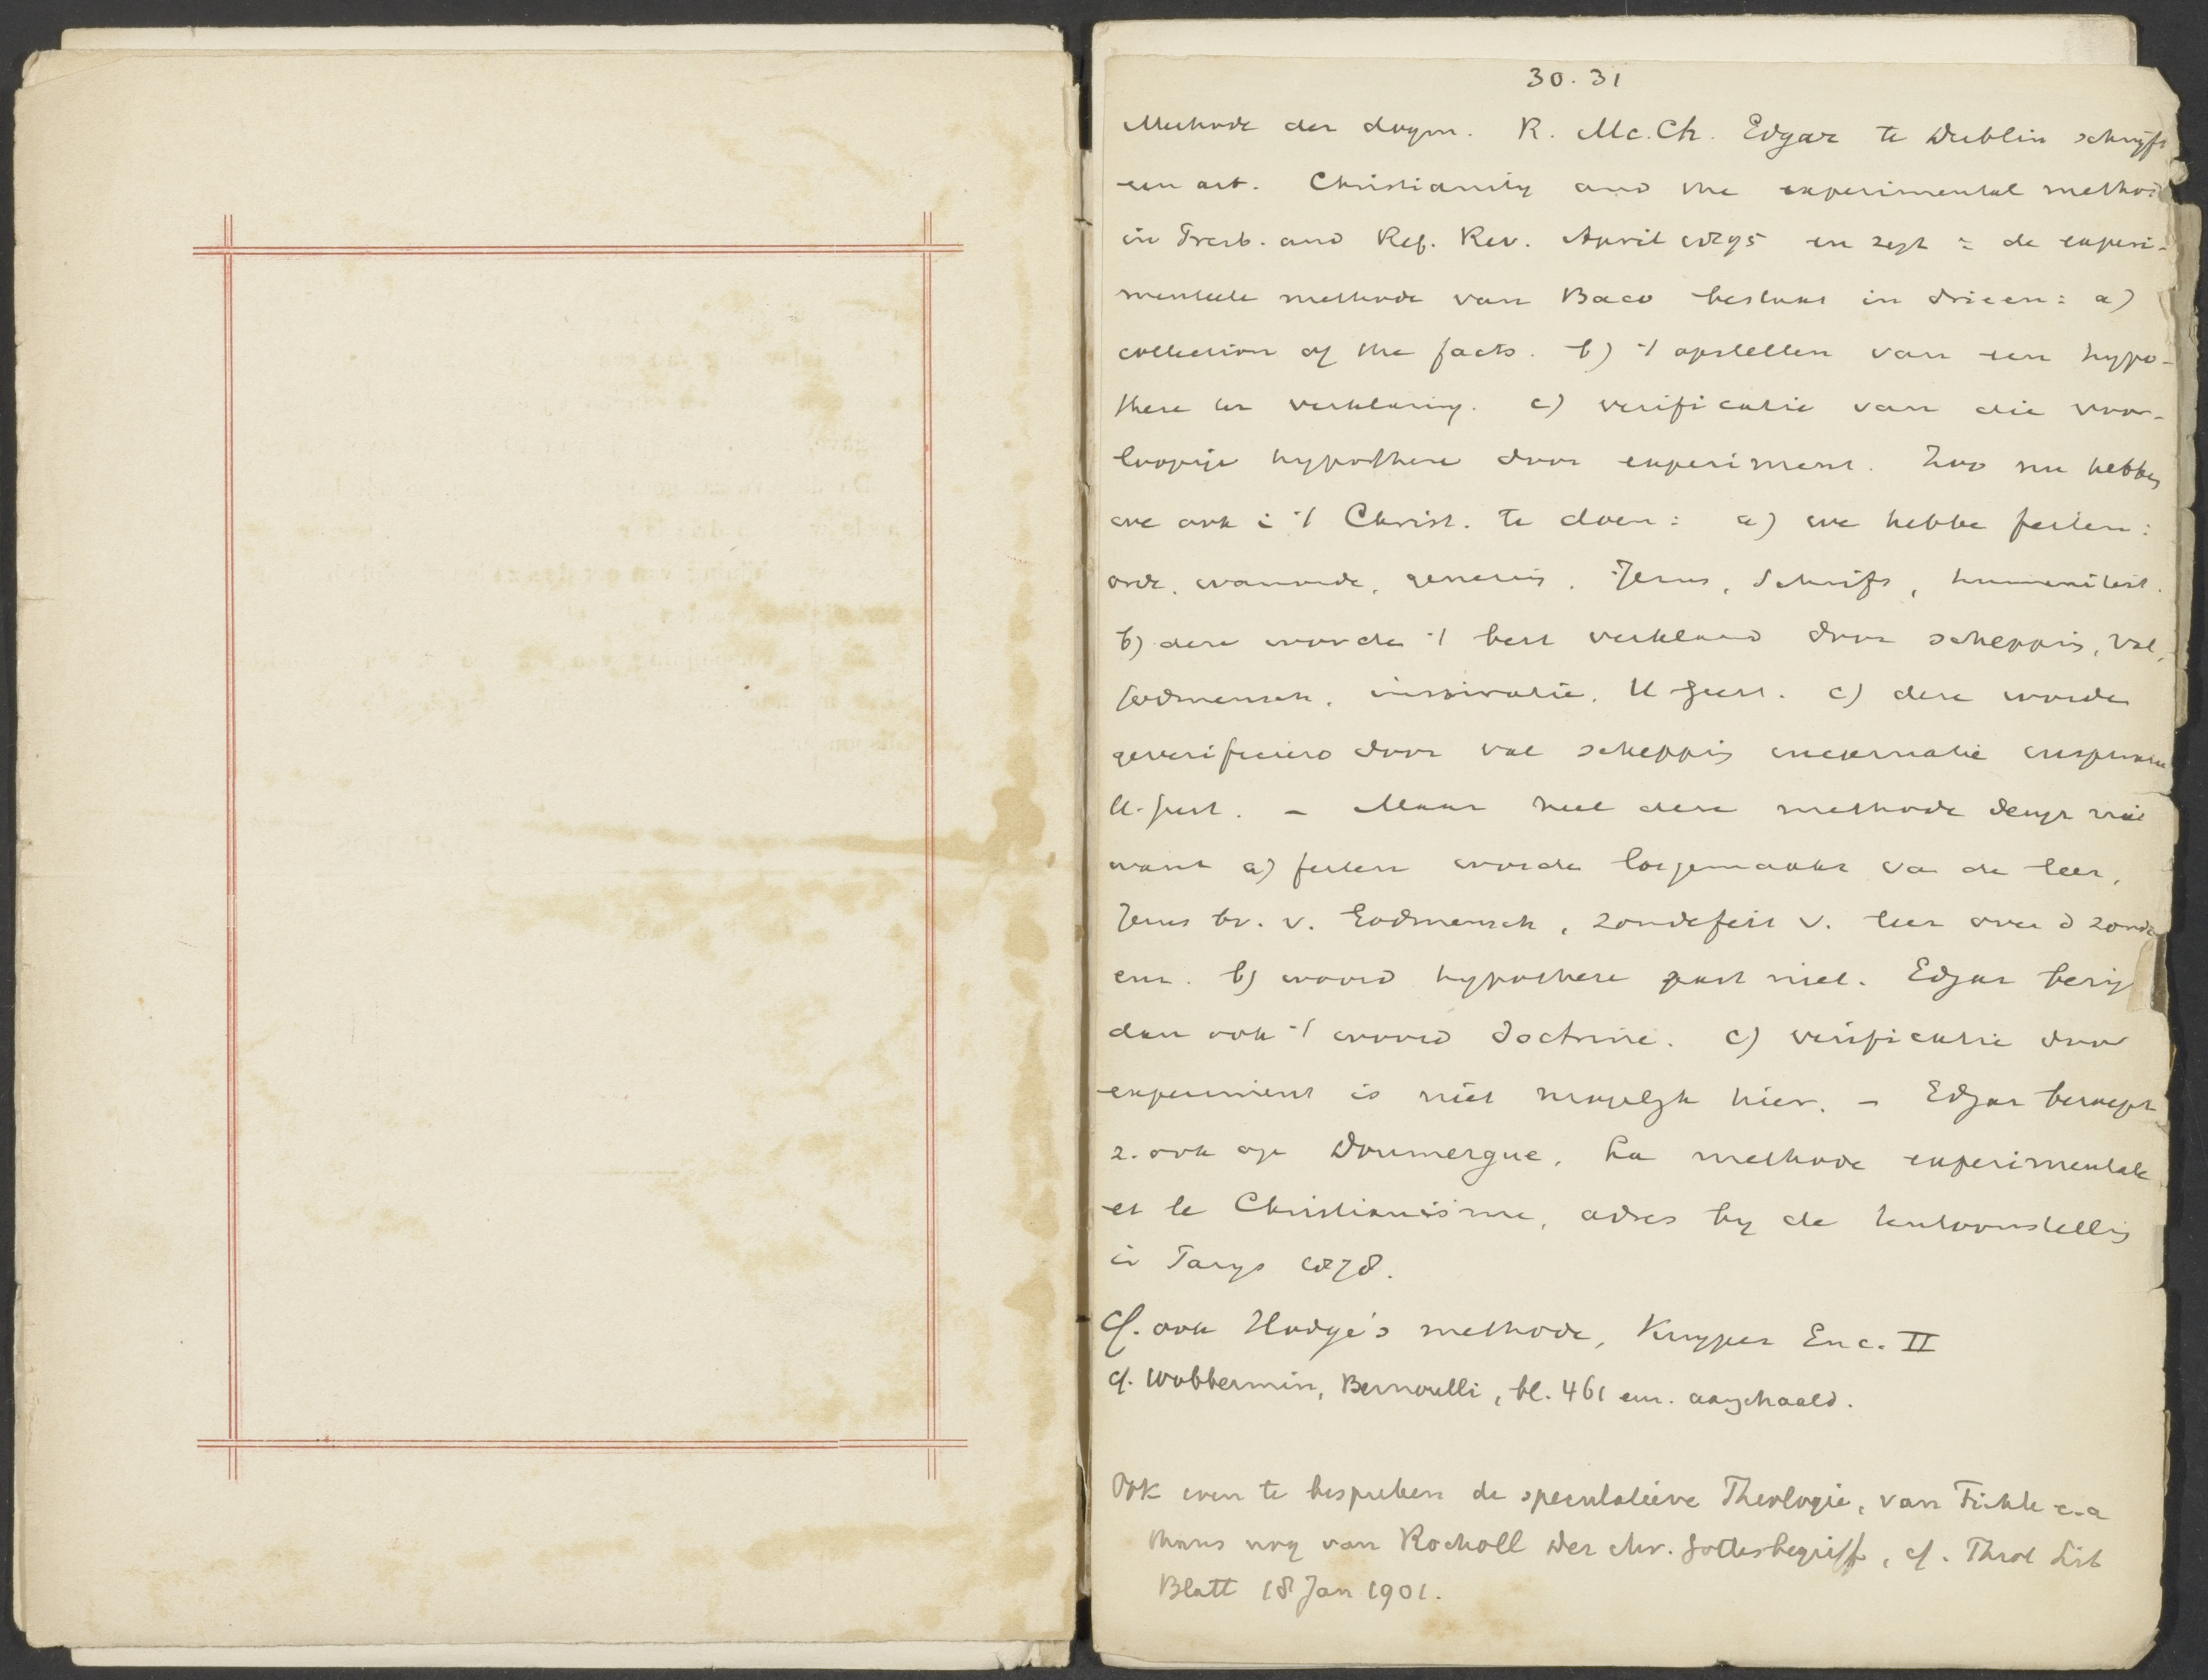 30. 31
Methode der dogm. R. Mc.Ch. Edgar te Dublin schrijft
een art. Christianity and the experimental method
in Presb. and Ref. Rev. April 1895 en zegt : de experi-
menteele methode van Baco bestaat in drieen: a)
collection of the facts. b) 't opstellen van een hypo-
these ter verklaring. c) verificatie van die voor-
loopige hypothese door experiment. Zoo nu hebben
we ook i 't Christ. te doen: a) we hebbe feiten:
orde, wanorde, genesis, Jezus, Schrift, humaniteit.
b) deze worde 't best verklaard door schepping, val,
Godmensch, inspiratie, H Geest. c) deze worde
geverifieerd door val schepping incarnatie inspiratie
H. Geest. – Maar heel deze methode deugt niet
want a) feiten worde losgemaakt va de leer,
Jezus bv. v. Godmensch, zondefeit v. leer over d zonde
enz. b) woord hypothese past niet. Edgar bezig
dan ook 't woord doctrine. c) verificatie door
experiment is niet mogelijk hier. – Edgar beroept
z. ook op Doumergue, La methode experimentale
et le Christianisme, adres bij de tentoonstelling
in Parijs 1878.
Cf. ook Hodge's methode, Kuyper Enc. II
cf. Wobbermin, Bernoulli, bl. 461 enz. aangehaald.
Ook even te bespreken de speculatieve Theologie, van Fichte e.a
thans nog van Rocholl Der chr. Gottesbegriff, cf. Theol Lit
Blatt 18 Jan 1901.